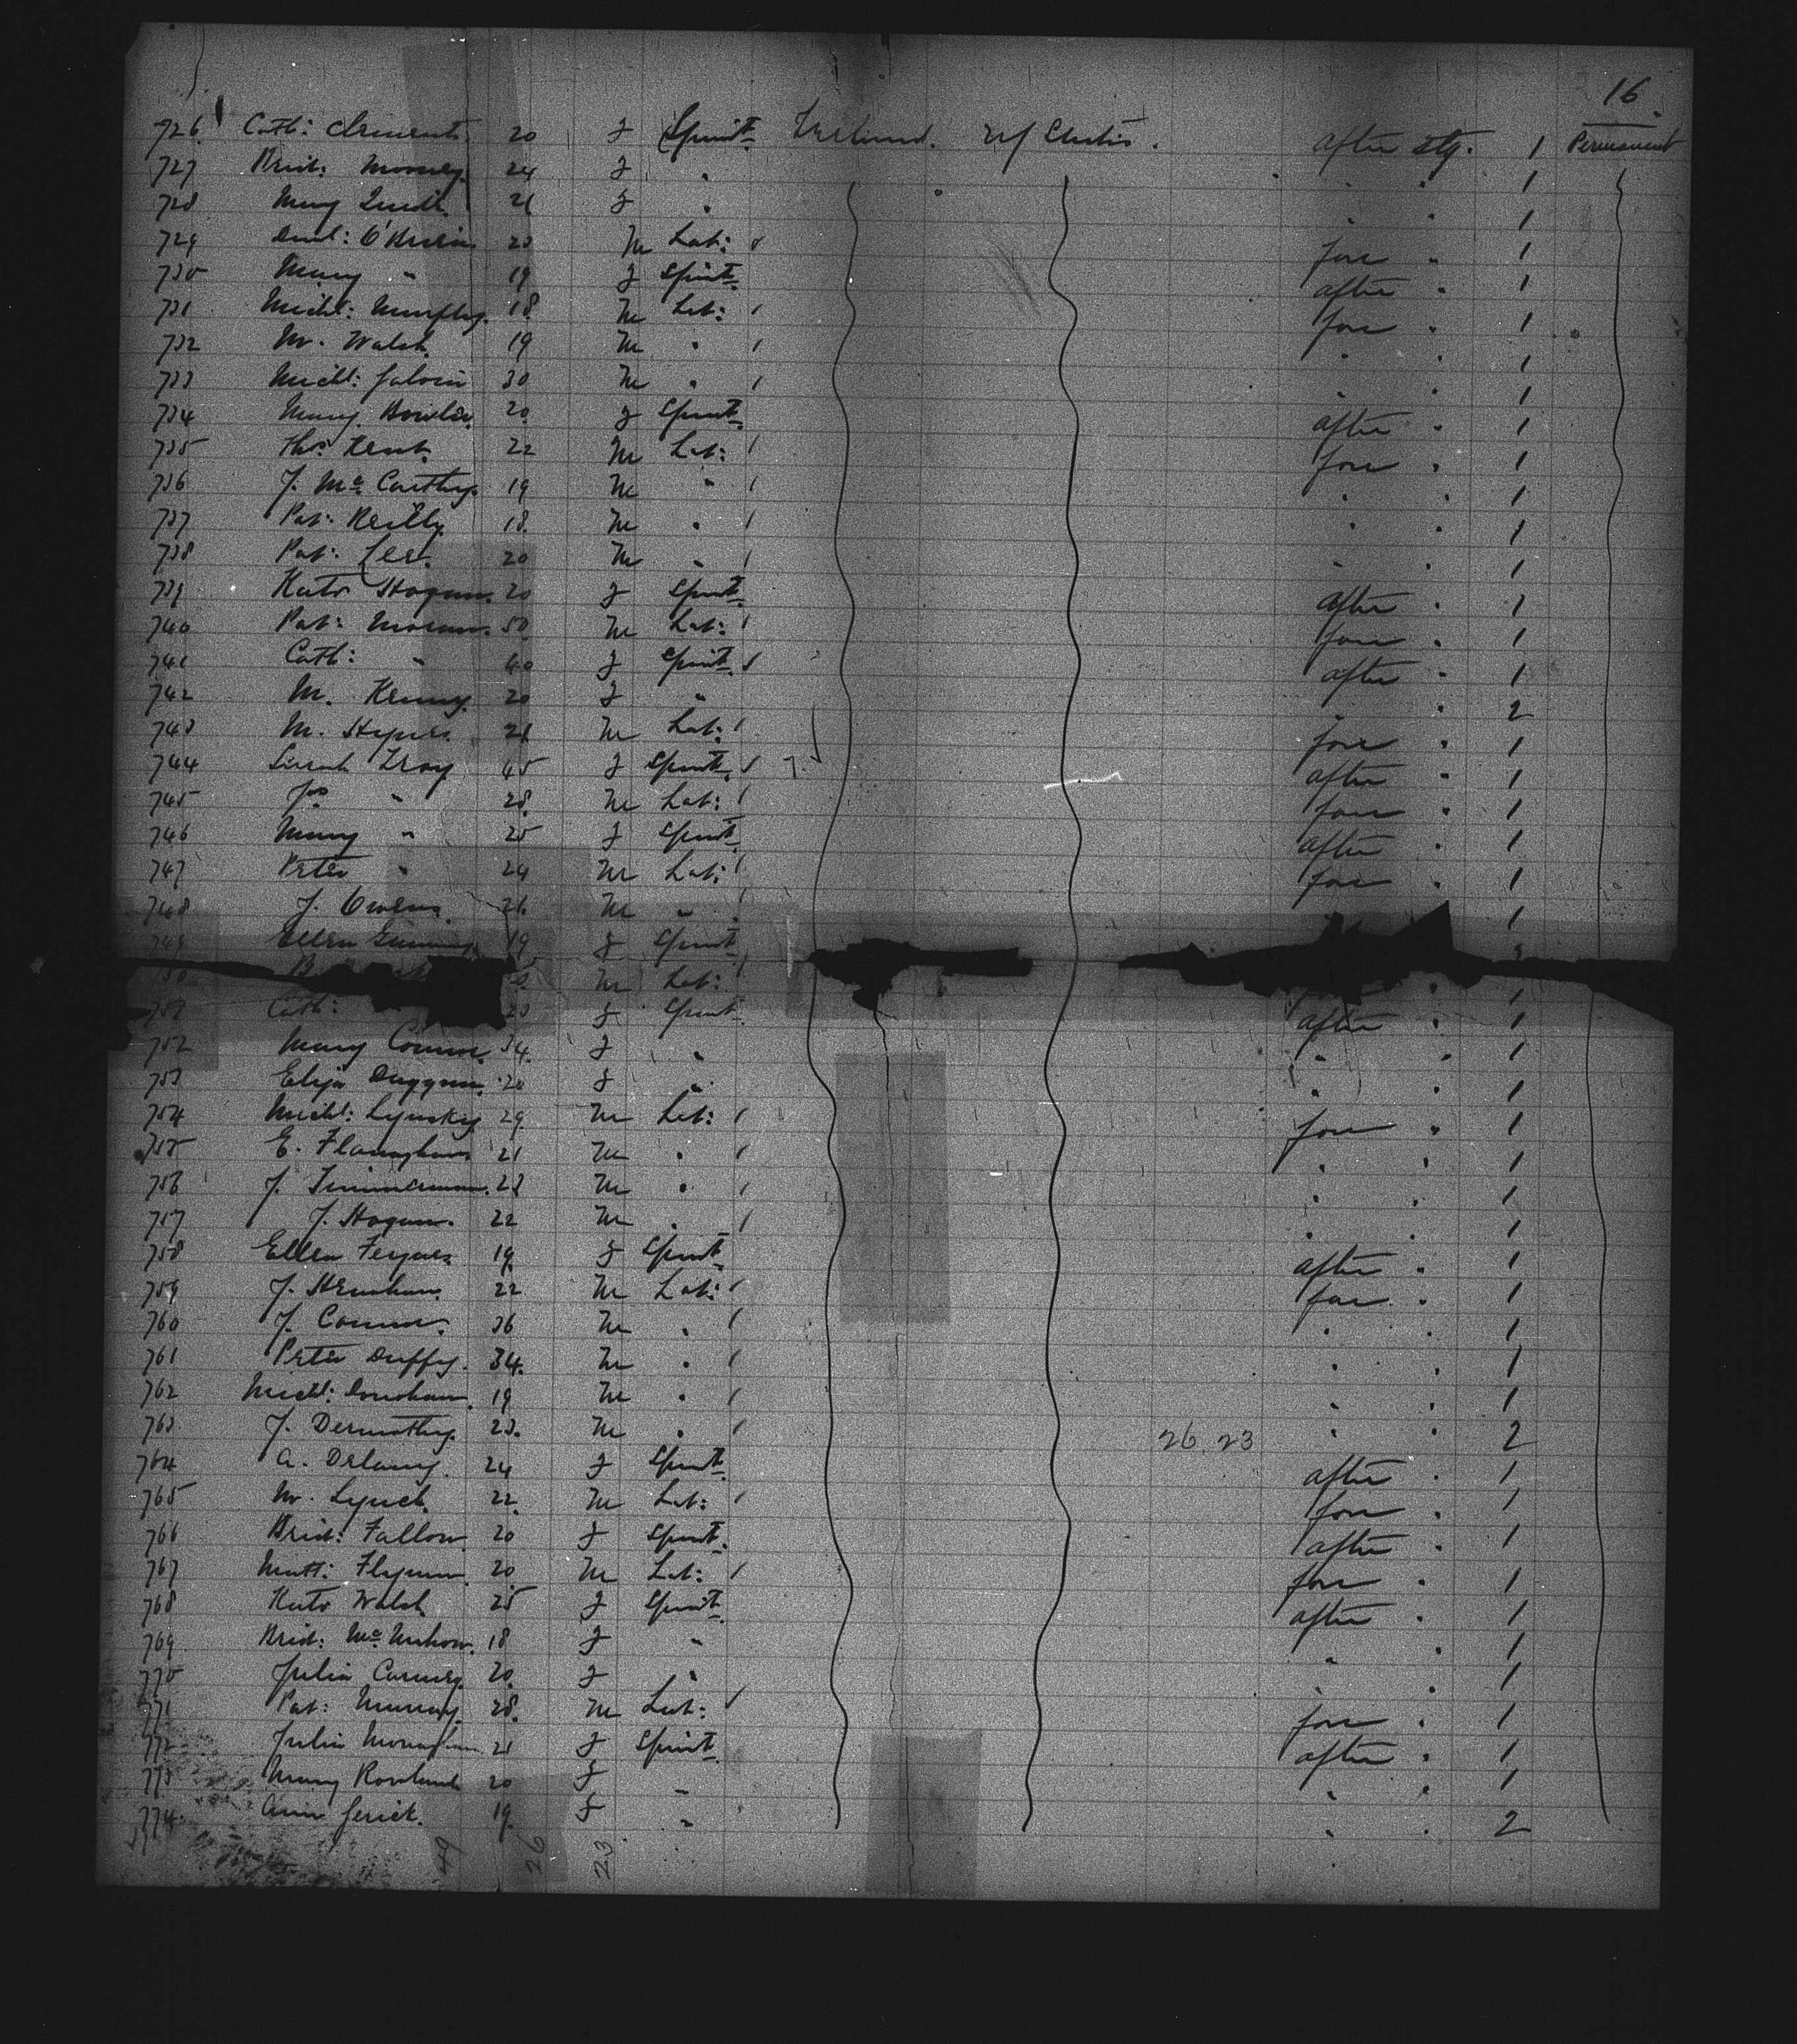 16
726 Cath: Clements. 20 f Spinst. Ireland. U/ States. after stg. 1 Permanent
727 Brid: Mooney. 24 f " " " 1
728 Mary 21 f " " " 1
729 Danl: O'Brien 23 M Lab: fore " 1
730 Mary " 19 f Spinst. after " 1
731 Michl: Murphy. 18. M Lab: fore " 1
732 M. Walsh. 19 M " " " 1
733 Michl: Galvin 30 M " " " 1
734 Mary Bowler. 20. f Spinst. after " 1
735 Thos. Kent. 22 M Lab: fore " 1
736 J. McCarthy. 19 M " " " 1
737 Pat: Reilly. 18. M " " " 1
738 Pat: Lee. 20 M " " " 1
739 Kate Hogan. 20 f Spinst. after " 1
740 Pat: Moran. 50 M Lab: fore " 1
741 Cath: " 40 f Spinst. after " 1
742 M. Kenny. 20 f " " " 2
743 M. Hynes. 21 M Lab: fore " 1
744 Sarah Troy 45 f Spinst. after " 1
745 Jas " 28. M Lab: fore " 1
746 Mary " 25 f Spinst. after " 1
747 Peter " 24 M Lab: fore " 1
748 J. Owens. 21. M " " 1
749 Ellen 19 f Spinst
M Lab: 1
751 Cath: 23 f Spinst. after " 1
752 Mary Connor. 34. f " " " 1
753 Eliza Duggan. 20 f " " " 1
754 Michl: Lynskey. 29. M Lab: fore " 1
755 E. Flanaghan 21 M " " " 1
756 J. 23 M " " " 1
757 J. Hogan. 22 M " " " 1
758 Ellen Fergus. 19. f Spinst. after " 1
759 J. 22 M Lab: fore " 1
760 J. Connor. 36 M " " " 1
761 Peter Duffy. 34. M " " " 1
762 Michl: Donohan. 19 M " " " 1
763 J. Dermothy. 23. M " 26.23 " " 2
764 A. Delaney. 24 f Spinst. after " 1
765 M. Lynch. 22. M Lab: fore " 1
766 Brid: Fallon. 20 f Spinst. after " 1
767 Matt: Flynn. 20 M Lab: fore " 1
768 Kate Walsh 25 f Spinst. after " 1
769 Brid: McMahon. 18 f " " " 1
770 Julia Carney. 20. f " " " 1
771 Pat: Murray. 28. M Lab: fore " 1
772 Julia Monaghan. 21 f Spinst. after " 1
773 Mary Rowland 20 f " " " 1
774. Ann Gerick. 19. f " " " 2
49 26 23